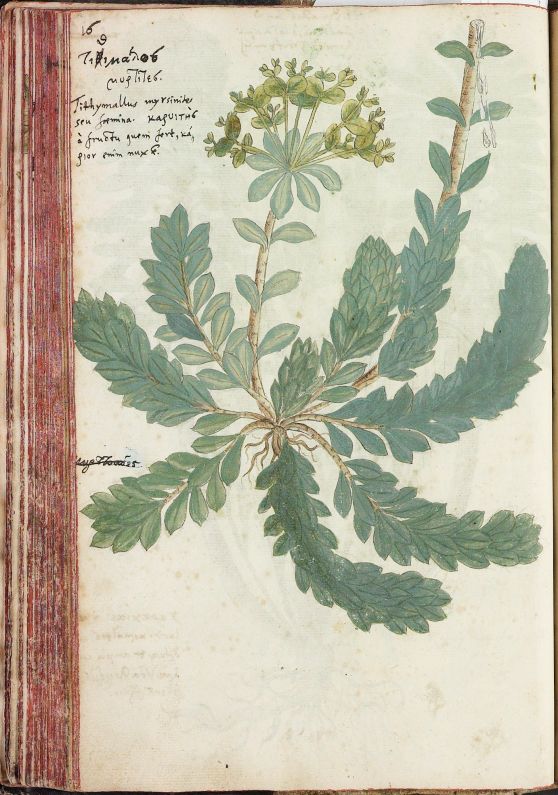 16
θ
Τιθιμαλος
μυρτιτες.
Tithymallus myrsinites
seu fœmina. καρυιτης
à fructu quem fert, κά,
ριον enim nux ē.